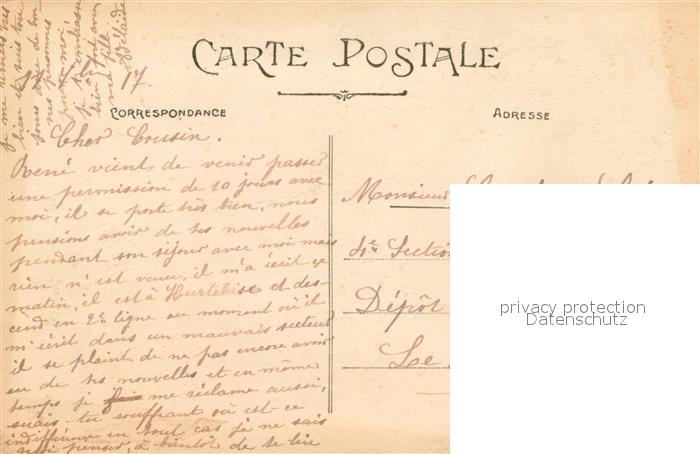 CARTE POSTALE
17.
CORRESPONDANCE
ADRESSE
Cher Cousin.
René vient de venir passer
une permission de 10 jours avec
moi, il se porte très bien, nous
pensions avoir de tes nouvelles
pendant son séjour avec moi mais
rien n'est venu, il m'a écrit ce
matin, il est à Hurtebise et des-
cend en 2e ligne au moment où il
m'écrit dans un mauvais secteur
il se plaint de ne pas encore avoir
eu de tes nouvelles et en même
temps je me réclame aussi,
serais-tu souffrant où est-ce
indifférence en tout cas je ne sais
quoi penser, à bientôt de te lire
Monsieur
Section
Dépôt
Le
privacy protection
Datenschutz